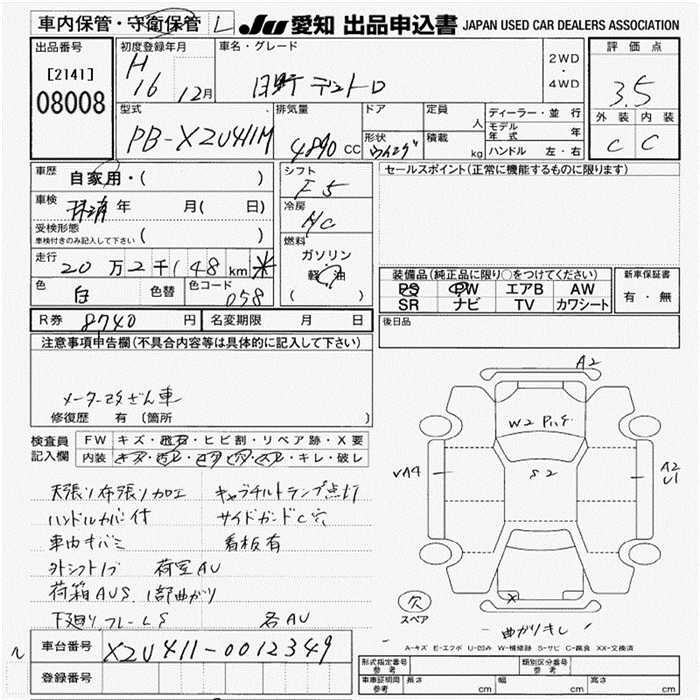 車内保管・守衛保管 L JU 愛知 出品申込書 JAPAN USED CAR DEALERS ASSOCIATION
出品番号 初度登録年月 車名・グレード 評価点
[2141] H 16 12月 日野 デュトロ 2WD・4WD 3.5
08008
型式 排気量 ドア 定員 人 ディーラー・並行 外装 内装
PB-XZU411M 4890 CC 形状 積載 kg モデル年式 年 C C
ハンドル 左・右
車歴 自家用・( ) シフト F5 セールスポイント(正常に機能するものに限ります)
車検 年 月( 日) 冷房 AC
受検形態 車検付きのみ記入して下さい ( ) 燃料 ガソリン
走行 20万2千148km * 軽油 ( )
装備品(純正品に限り○をつけてください) 新車保証書
色 白 色替 色コード 058
PS PW エアB AW 有・無
SR ナビ TV カワシート
R券 8740円 名変期限 月 日 後日品
注意事項申告欄(不具合内容等は具体的に記入して下さい)
メーター改ざん車
修復歴 有(箇所 )
検査員記入欄 FW キズ・飛石・ヒビ割・リペア跡・X要
内装 キズ・汚レ・コゲ・穴・スレ・キレ・破レ
天張り布張り加工 キャラチルトランプ点灯
ハンドルカバー付 サイドガードC穴
車内キバミ 看板有
外シフトノブ 荷室AU
荷箱AUS.1部曲がり
下廻りフレームS 各AU
車台番号 XZU411-0012349
登録番号
A2
W2 P.レヂ
S2
A2
U1
欠
スペア
X
曲がりキレ
A-キズ E-エクボ U-凹み W-補修跡 S-サビ C-腐食 XX-交換済
形式指定番号 参考 類別区分番号 参考
車庫証明用 参考 長さ cm 幅 cm 高さ cm